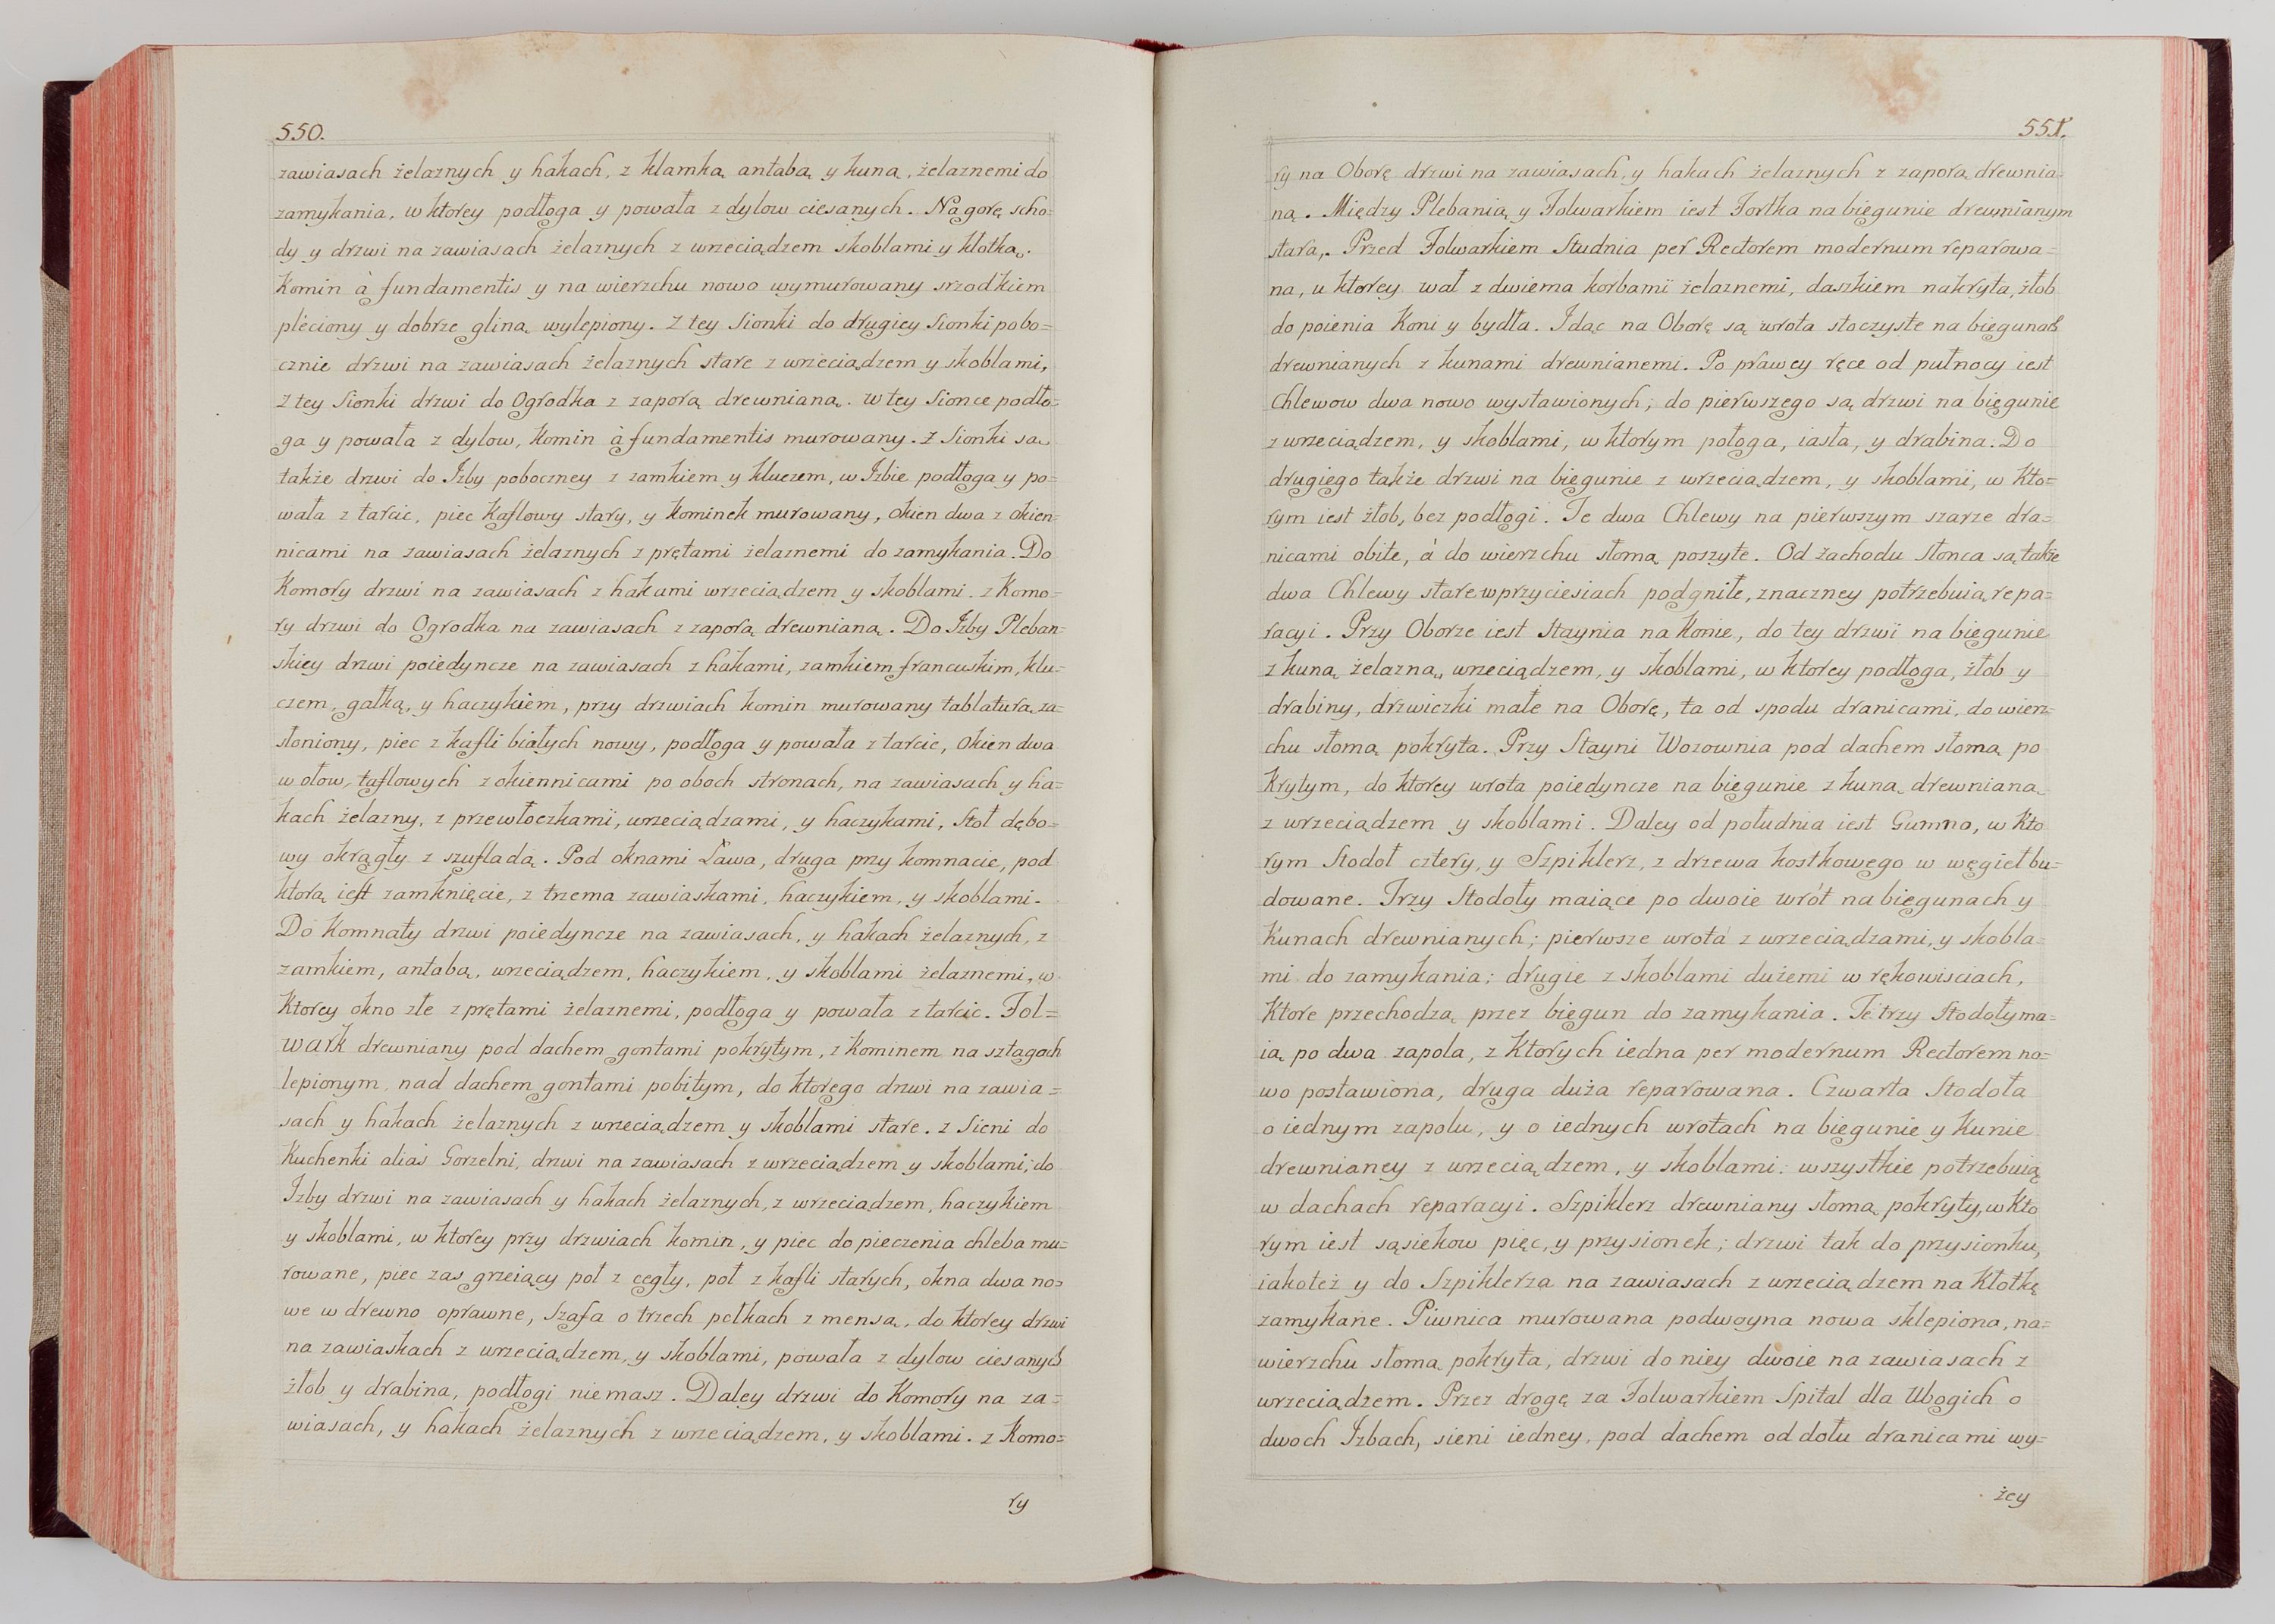 550.
zawiasach żelaznych y hakach, z klamką antabą y kuną, żelaznemi do
zamykania, w ktorey podłoga y powała z dylow ciesanych. Na gorę scho=
dy y drzwi na zawiasach żelaznych z wrzeciądzem skoblami y klotką.
Komin à fundamentis y na wierzchu nowo wymurowany srzodkiem
pleciony y dobrze gliną wylepiony. Z tey Sionki do drugiey Sionki pobo=
cznie drzwi na zawiasach żelaznych stare z wrzeciądzem y skoblami,
Z tey Sionki drzwi do Ogrodka z zaporą drewnianą. W tey Sionce podło=
ga y powała z dylow, Komin à fundamentis murowany. Z Sionki są
także drzwi do Izby poboczney z zamkiem y kluczem, w Izbie podłoga y po=
wała z tarcic, piec Kaflowy stary, y Kominek murowany, Okien dwa z okien=
nicami na zawiasach żelaznych z prętami żelaznemi do zamykania. Do
Komory drzwi na zawiasach z hakami wrzeciądzem y skoblami. z Komo=
ry drzwi do Ogrodka na zawiasach z zaporą drewnianą. Do Izby Pleban=
skiey drzwi poiedyncze na zawiasach z hakami, zamkiem francuskim, klu=
czem, gałką, y haczykiem, przy drzwiach komin murowany tablaturą za=
słoniony, piec z kafli białych nowy, podłoga y powała z tarcic, Okien dwa
w ołow, taflowych z okiennicami po oboch stronach, na zawiasach y ha=
kach żelazny, z przewłoczkami, wrzeciądzami, y haczykami, Stoł dębo=
wy okrągły z szufladą. Pod oknami Ława, druga przy komnacie, pod
ktorą iest zamknięcie, z trzema zawiaskami, haczykiem, y skoblami.
Do Komnaty drzwi poiedyncze na zawiasach, y hakach żelaznych, z
zamkiem, antabą, wrzeciądzem, haczykiem, y skoblami żelaznemi, w
Ktorey okno złe z prętami żelaznemi, podłoga y powała z tarcic. Fol=
wark drewniany pod dachem gontami pokrytym, z Kominem na sztagach
lepionym nad dachem gontami pobitym, do ktorego drzwi na zawia=
sach y hakach żelaznych z wrzeciądzem y skoblami stare. z Sieni do
Kuchenki alias Gorzelni, drzwi na zawiasach z wrzeciądzem y skoblami; do
Izby drzwi na zawiasach y hakach żelaznych, z wrzeciądzem, haczykiem
y skoblami, w ktorey przy drzwiach komin, y piec do pieczenia chleba mu=
rowane, piec zas grzeiący poł z cegły, poł z kafli starych, okna dwa no=
we w drewno oprawne, Szafa o trzech połkach z mensą, do ktorey drzwi
na zawiaskach z wrzeciądzem, y skoblami, powała z dylow ciesanych
żłob y drabina, podłogi niemasz. Daley drzwi do Komory na za=
wiasach, y hakach żelaznych z wrzeciądzem, y skoblami. z Komo=
ry
551.
ry na Oborę drzwi na zawiasach, y hakach żelaznych z zaporą drewnia=
ną. Między Plebanią y Folwarkiem iest Fortka na biegunie drewnianym
stara,. Przed Folwarkiem Studnia per Rectorem modernum reparowa=
na, u ktorey wał z dwiema korbami żelaznemi, daszkiem nakryta, żłob
do poienia Koni y bydła. Idąc na Oborę są wrota stoczyste na biegunach
drewnianych z kunami drewnianemi. Po prawey ręce od pułnocy iest
Chlewow dwa nowo wystawionych; do pierwszego są drzwi na biegunie
z wrzeciądzem, y skoblami, w ktorym połoga, iasła, y drabina. Do
drugiego także drzwi na biegunie z wrzeciądzem, y skoblami, w Kto=
rym iest żłob, bez podłogi. Te dwa Chlewy na pierwszym szarze dra=
nicami obite, á do wierzchu słomą poszyte. Od zachodu słonca są także
dwa Chlewy stare w przyciesiach podgniłe, znaczney potrzebuią repa=
racyi. Przy Oborze iest Staynia na Konie, do tey drzwi na biegunie
z kuną żelazną, wrzeciądzem, y skoblami, w ktorey podłoga, żłob y
drabiny, drzwiczki małe na Oborę, ta od spodu dranicami, do wierz=
chu słomą pokryta. Przy Stayni Wozownia pod dachem słomą po
Krytym, do ktorey wrota poiedyncze na biegunie z kuną drewnianą
z wrzeciądzem y skoblami. Daley od południa iest Gumno, w Kto
rym Stodoł cztery, y Szpiklerz, z drzewa kostkowego w węgieł bu=
dowane. Trzy Stodoły maiące po dwoie wrót na biegunach y
Kunach drewnianych; pierwsze wrota z wrzeciądzami, y skobla=
mi do zamykania; drugie z skoblami dużemi w rękowisciach,
Ktore przechodzą przez biegun do zamykania. Te trzy Stodoły ma=
ią po dwa zapola, z Ktorych iedna per modernum Rectorem no=
wo postawiona, druga duża reparowana. Czwarta Stodoła
o iednym zapolu, y o iednych wrotach na biegunie y Kunie
drewnianey z wrzeciądzem, y skoblami: wszystkie potrzebuią
w dachach reparacyi. Szpiklerz drewniany słomą pokryty, w Kto
rym iest sąsiekow pięc, y przysionek; drzwi tak do przysionku,
iakoteż y do Szpiklerza na zawiasach z wrzeciądzem na Kłotkę
zamykane. Piwnica murowana podwoyna nowa sklepiona, na=
wierzchu słomą pokryta, drzwi do niey dwoie na zawiasach z
wrzeciądzem. Przez drogę za Folwarkiem Spital dla Ubogich o
dwoch Izbach, sieni iedney, pod dachem od dołu dranicami wy=
żey